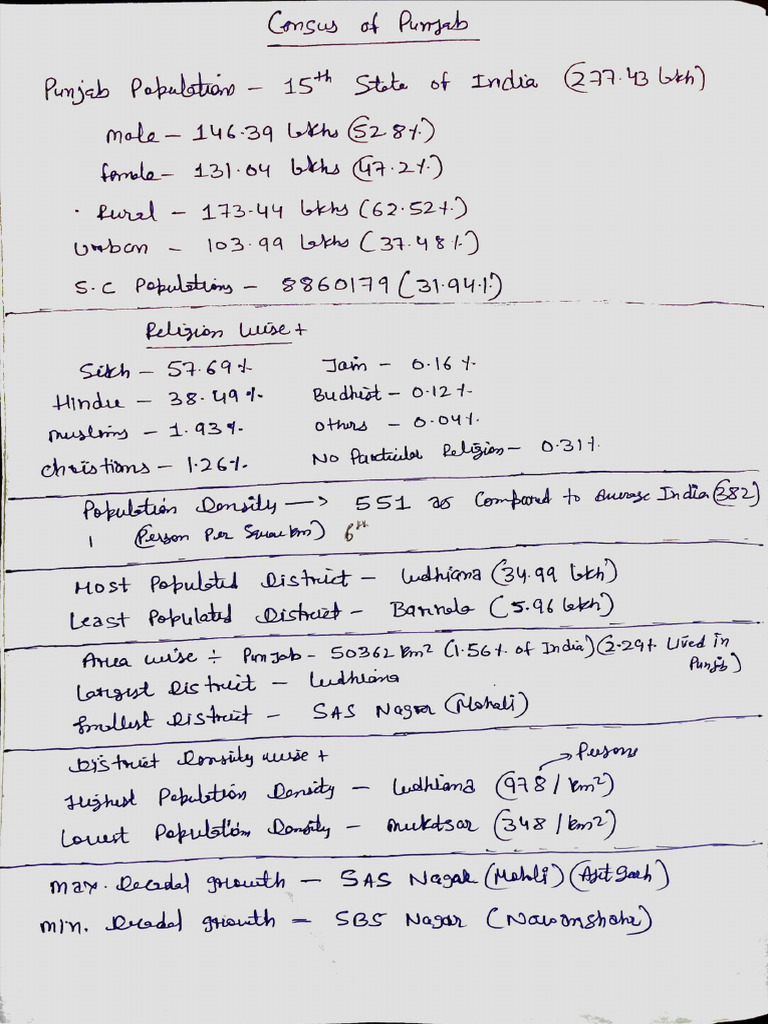 Census of Punjab
Punjab Population - 15th State of India (277.43 lakh)
male - 146.39 lakhs (52.8%)
female - 131.04 lakhs (47.2%)
. Rural - 173.44 lakhs (62.52%)
Urban - 103.99 lakhs (37.48%)
S.C Populations - 8860179 (31.94%)
Religion wise +
Sikh - 57.69% Jain - 0.16%
Hindu - 38.49% Budhist - 0.12%
muslims - 1.93% others - 0.04%
christians - 1.26% No Particular Religion - 0.31%
Population Density → 551 as Compared to average India (382)
(Person Per Square km) 6th
Most Populated District - Ludhiana (34.99 lakh)
Least Populated District - Barnala (5.96 lakh)
Area wise ÷ Punjab - 50362 km² (1.56% of India) (2.29% Lived in Punjab)
Largest District - Ludhiana
Smallest District - SAS Nagar (Mohali)
District Density wise +
Persons
Highest Population Density - Ludhiana (978/km²)
Lowest Population Density - mukatsar (348/km²)
max. Decadal growth - SAS Nagar (Mohali) (Ajit Garh)
min. Decadal growth - SBS Nagar (Nawanshahr)